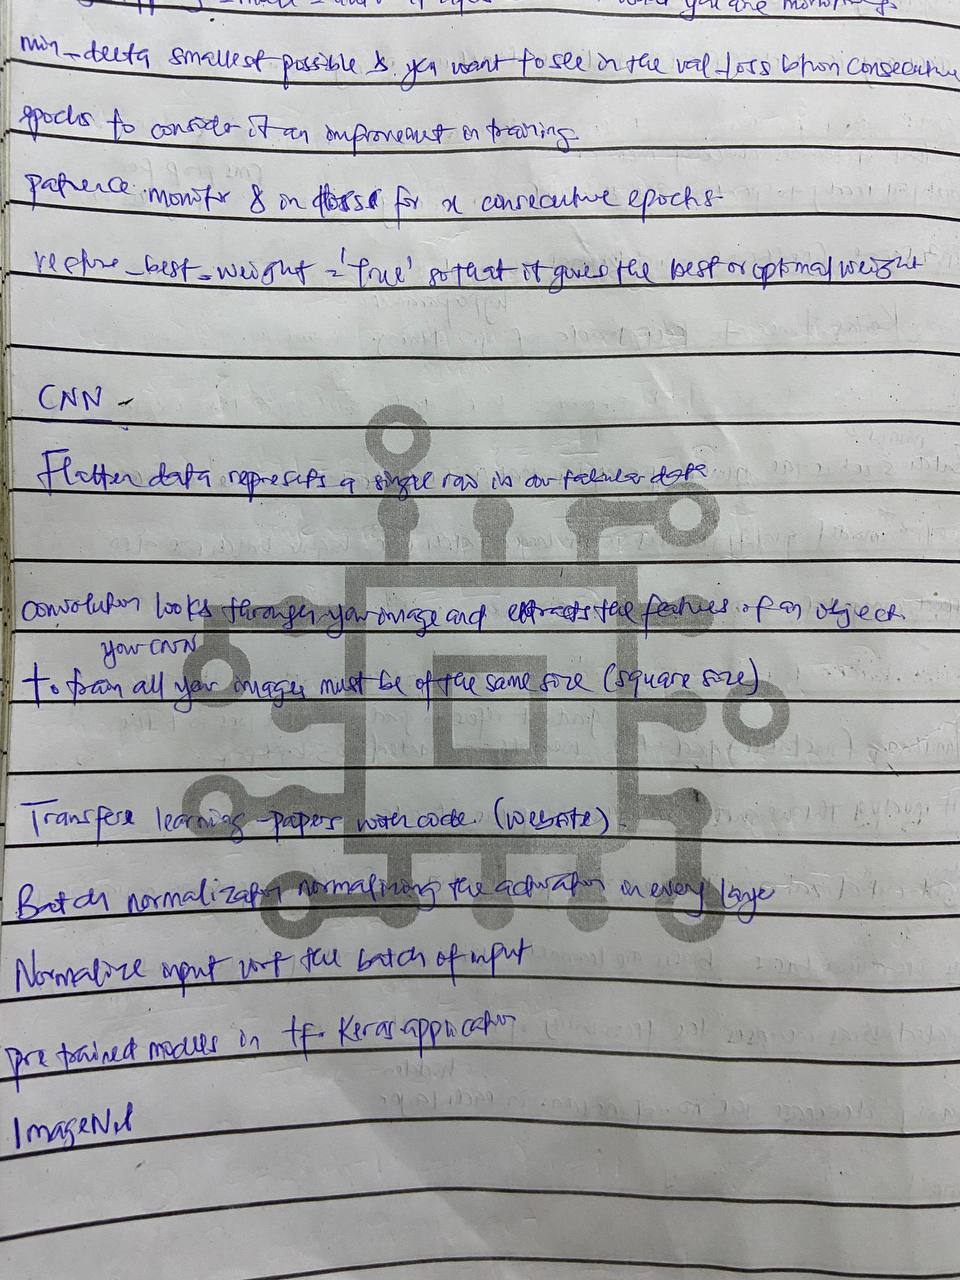 you are monitoring.
min_delta smallest possible & you want to see in the val_loss between consecutive
epochs to consider it an improvement in training
patience monitor & in loss for x consecutive epochs.
restore_best_weight = 'True' so that it gives the best or optimal weight
CNN -
Flatten data represents a single row in our tabular data
convolution looks through your image and extracts the features of an object.
your CNN
to train all your images must be of the same size (square size)
Transfere learning - papers with code. (website).
Batch normalization normalizing the activation in every layer
Normalize input wrt the batch of input
pre trained models in tf. Keras.application
ImageNet